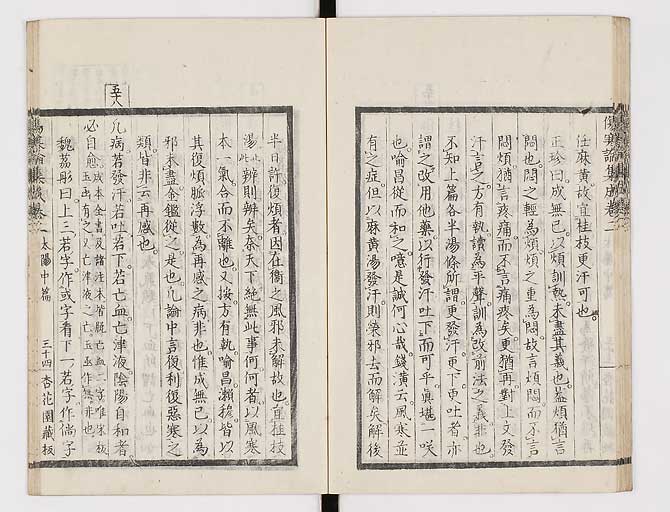 傷寒論集成卷二
任麻黃故宜桂枝更汗可也
正珍曰成無已以煩訓熱未盡其義也葢煩猶言
悶也悶之輕為煩煩之重為悶故言煩悶而不言
悶煩猶言疼痛而不言痛疼矣更猶再對上文發
汗言之方有執讀為平聲訓為改前法之義非也
不知上篇各半湯條所謂更發汗更下更吐者亦
謂之改用他藥以行發汗吐下而可乎眞堪一咲
也喻昌從而和之噫是誠何心哉錢潢云風寒並
有之症但以麻黃湯發汗則寒邪去而解矣解後
半日許復煩者因在衛之風邪未解故也宜桂枝
湯此辨則辨矣奈天下絶無此事何何者以風寒
本一氣合而不離也又按方有執喻昌瀨穆皆以
其復煩脈浮數為再感之病非也惟成無已以為
邪未盡金鑑從之是也凡論中言復利復惡寒之
類皆非云再感也
五十八
凡病若發汗若吐若下若亡血亡津液陰陽自和者
必自愈
成本金書及諸注本皆脫亡血二字唯宋板
玉函有之又亡津液之亡玉函作無非也
魏荔彤曰上三若字作或字看下一若字作倘字
傷寒論集成卷二 太陽中篇 三十四 杏花園藏板